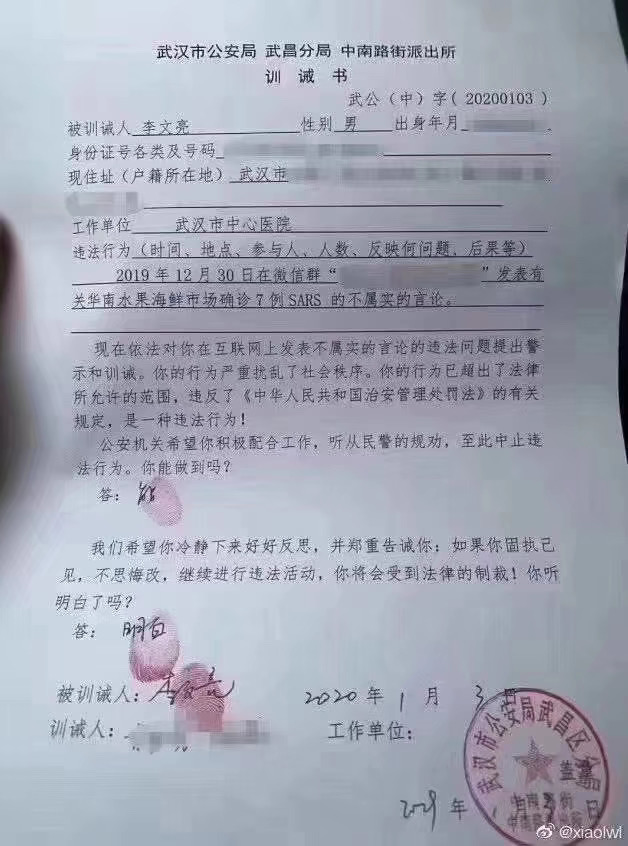 武汉市公安局 武昌分局 中南路街派出所
训 诫 书
武公（中）字（20200103）
被训诫人 李文亮 性别 男 出身年月
身份证号各类及号码
现住址（户籍所在地） 武汉市
工作单位 武汉市中心医院
违法行为（时间、地点、参与人、人数、反映何问题、后果等）
2019 年 12 月 30 日在微信群“ ”发表有
关华南水果海鲜市场确诊 7 例 SARS 的不属实的言论。
现在依法对你在互联网上发表不属实的言论的违法问题提出警
示和训诫。你的行为严重扰乱了社会秩序。你的行为已超出了法律
所允许的范围，违反了《中华人民共和国治安管理处罚法》的有关
规定，是一种违法行为！
公安机关希望你积极配合工作，听从民警的规劝，至此中止违
法行为。你能做到吗？
答： 能
我们希望你冷静下来好好反思，并郑重告诫你：如果你固执己
见，不思悔改，继续进行违法活动，你将会受到法律的制裁！你听
明白了吗？
答： 明白
被训诫人： 李文亮 2020 年 1 月 3 日
训诫人： 工作单位：
武汉市公安局武昌区分局
盖章
中南路街
中南路派出所
年 1 月 3 日
@xiaolwl